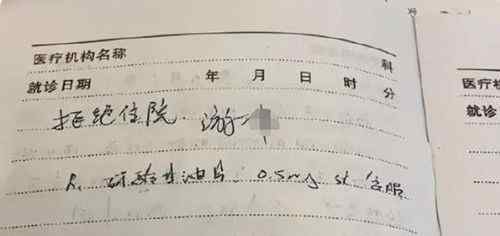 医疗机构名称 科
就诊日期 年 月 日 时 分
拒绝住院. 游
R. 硝酸甘油片 0.5mg st 舌服
医疗机
就诊